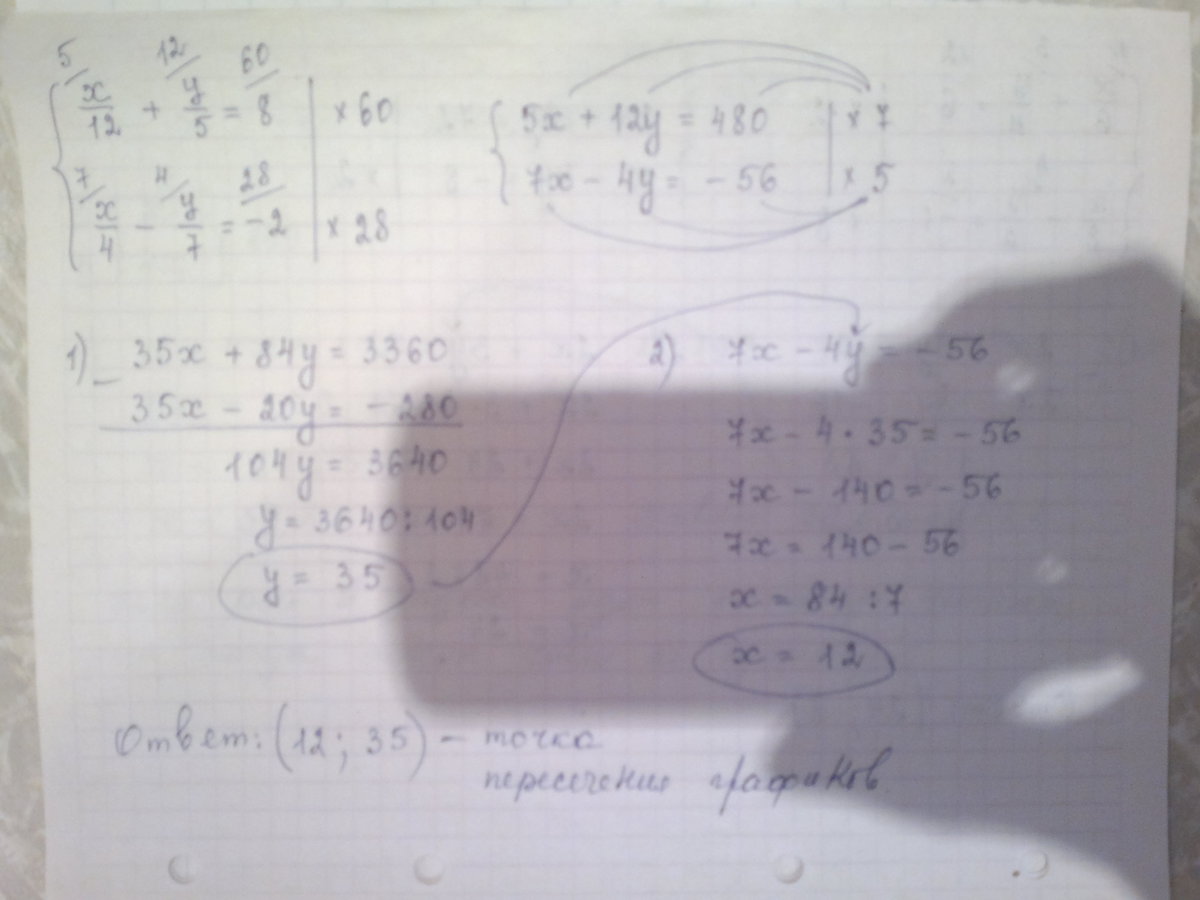 5/ 12/ 60/
x/12 + y/5 = 8 | × 60
7/ 4/ 28/
x/4 - y/7 = -2 | × 28
5x + 12y = 480 | × 7
7x - 4y = -56 | × 5
1) 35x + 84y = 3360
- 35x - 20y = -280
104y = 3640
y = 3640 : 104
y = 35
2) 7x - 4y = -56
7x - 4 · 35 = -56
7x - 140 = -56
7x = 140 - 56
x = 84 : 7
x = 12
Ответ: (12; 35) - точка
пересечения графиков.